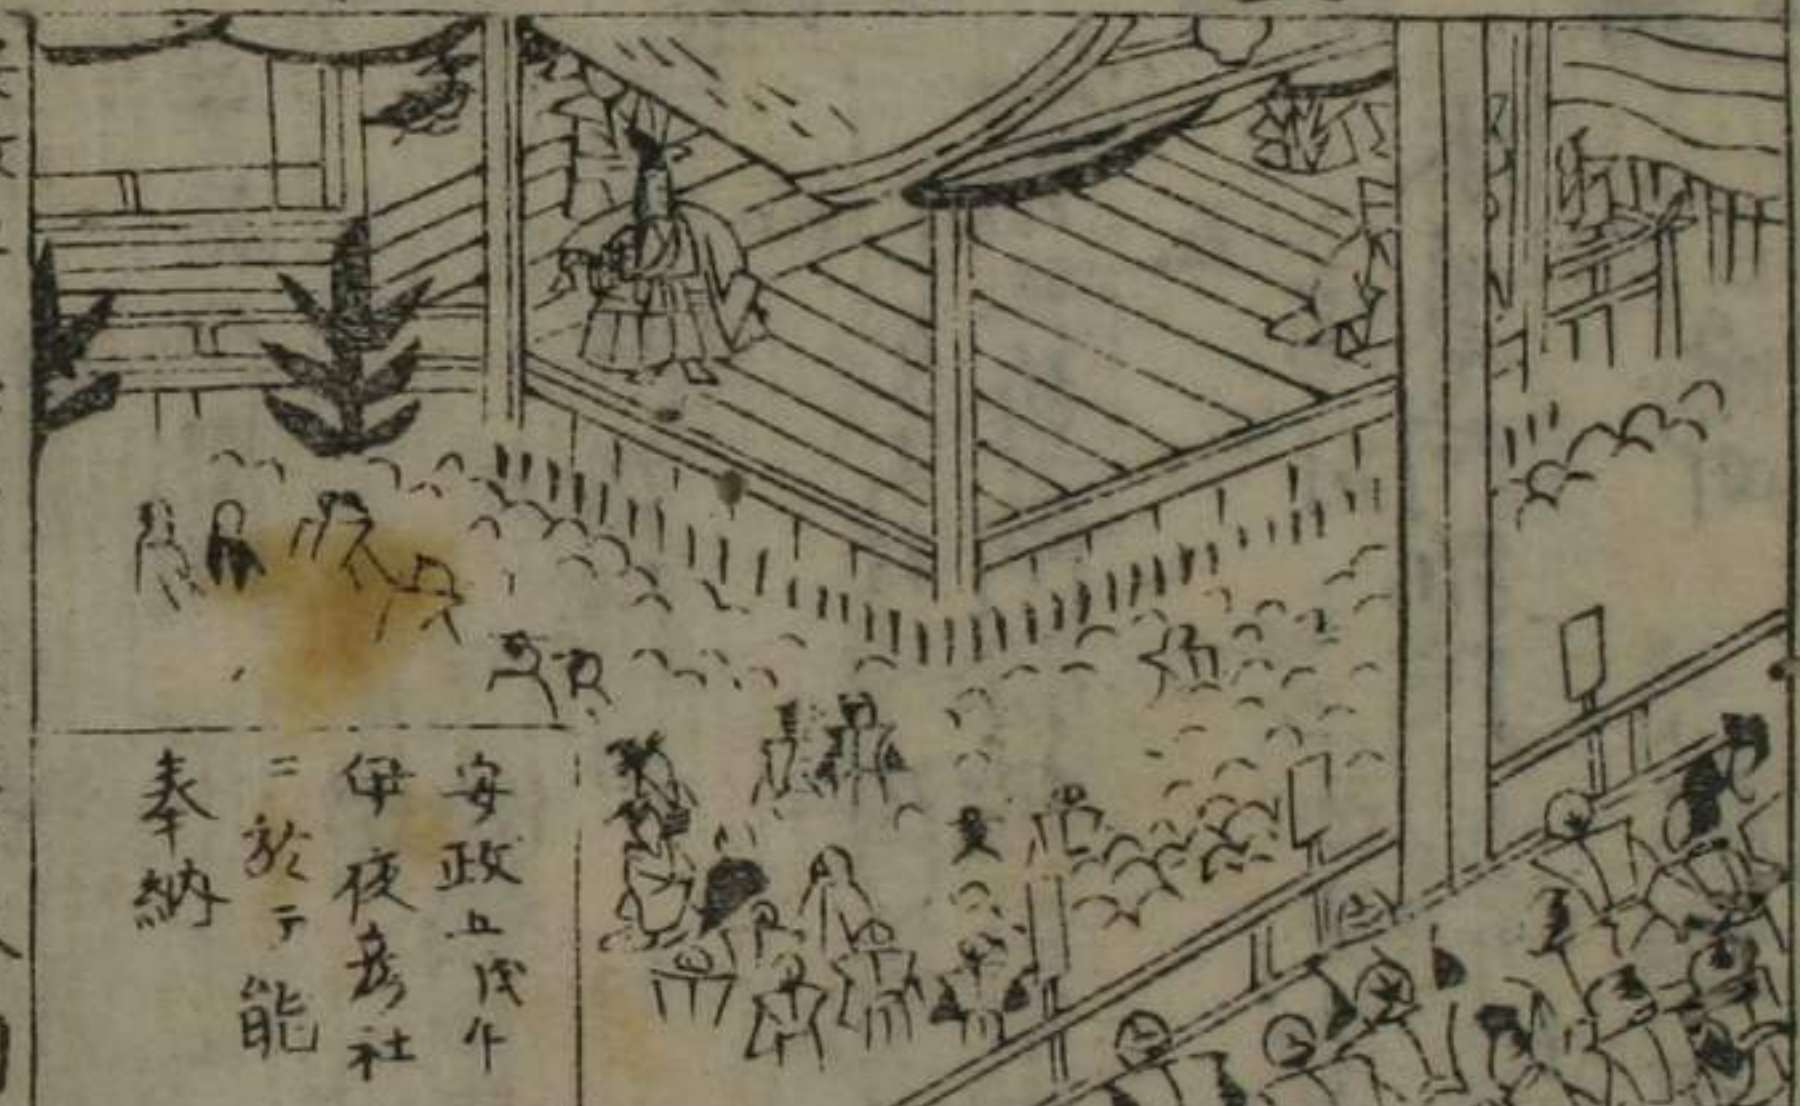 安政五戊午
伊夜彦社
ニ於テ能
奉納